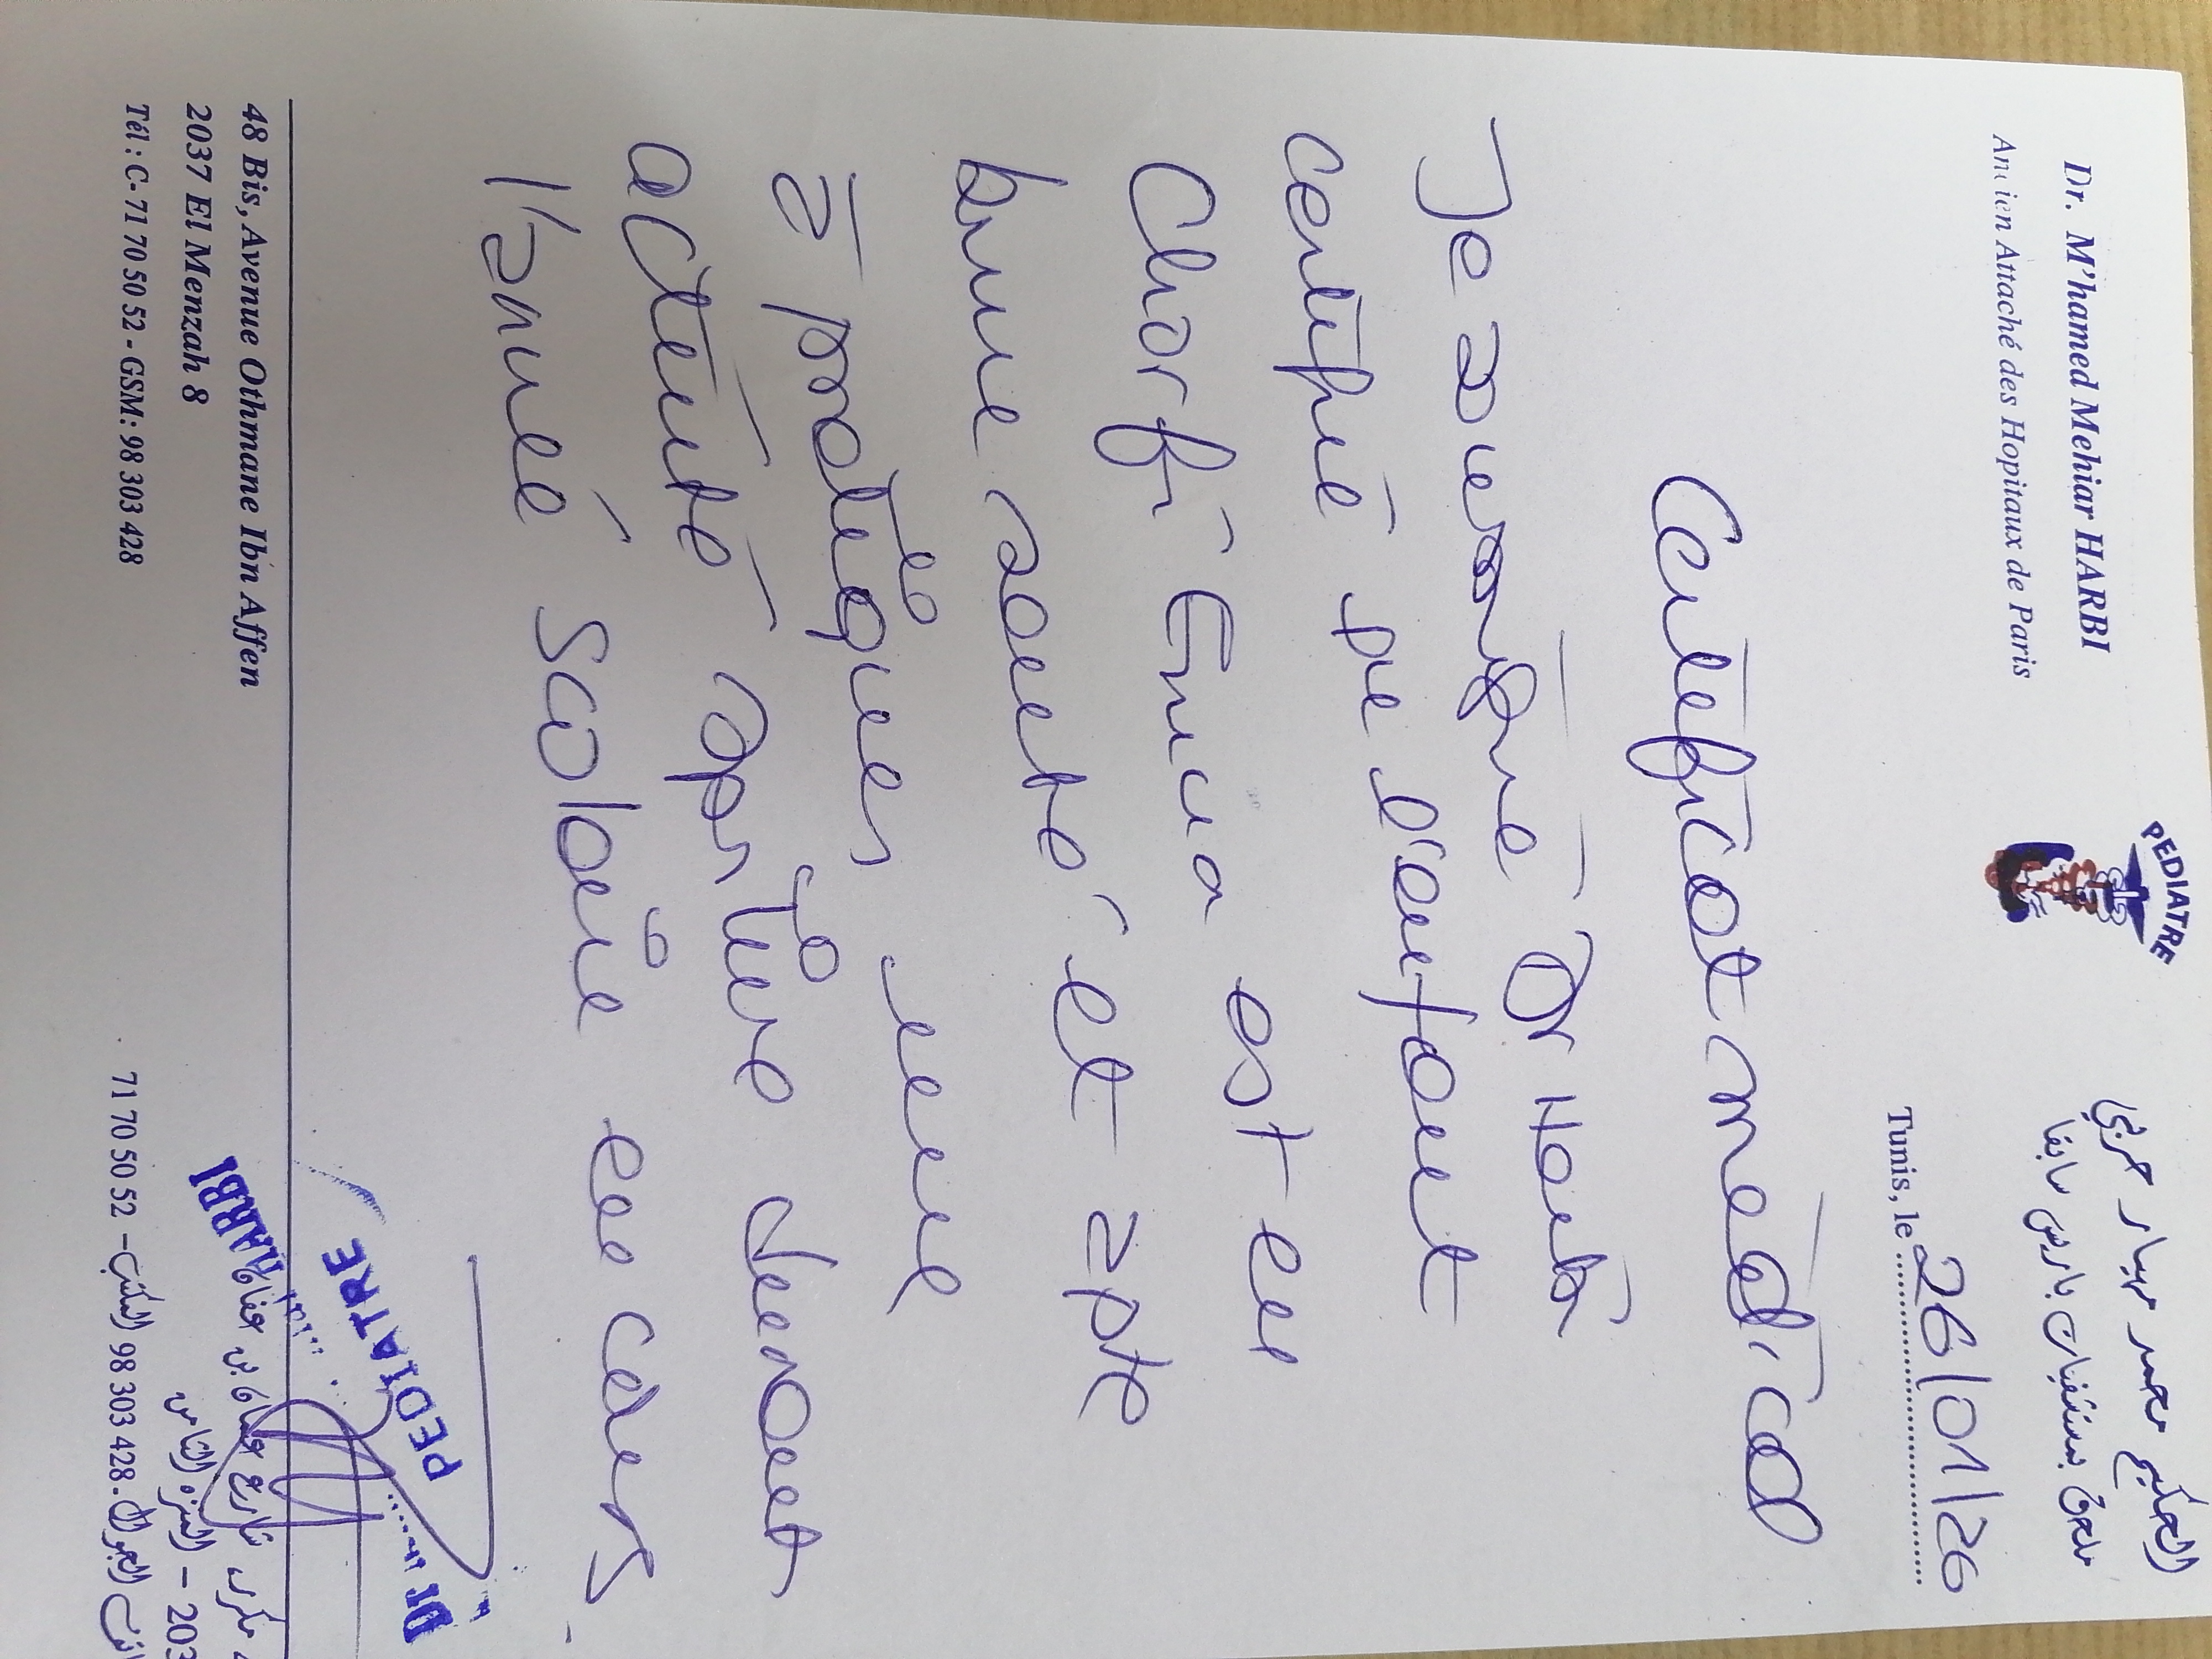 Dr. M'hamed Mehiar HARBI
Ancien Attaché des Hopitaux de Paris
PEDIATRE
الحكيم محمد مهيار حربي
ملحق بمستشفيات باريس سابقا
Tunis, le 26/01/26
Certificat médical
Je soussigné Dr Harbi
certifié que l'enfant
Chorfi Emna est en
bonne santé et apte
à pratiquer une
activité sportive durant
l'année scolaire en cours.
Dr
PEDIATRE
HARBI
48 Bis, Avenue Othmane Ibn Affen
2037 El Menzah 8
Tél : C- 71 70 50 52 - GSM: 98 303 428
مكرر، شارع عثمان بن عفان
المنزه الثامن – 203
الجوال. 98 303 428 المكتب – 71 70 50 52